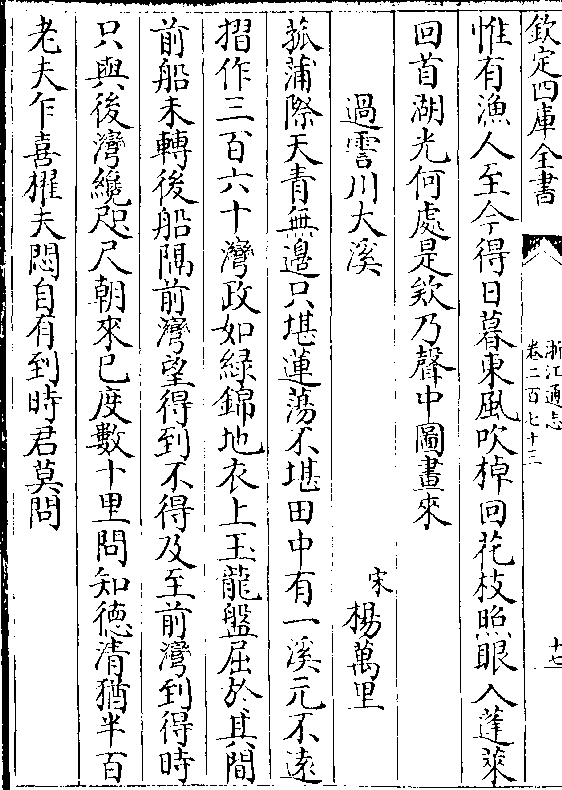 欽定四庫全書
浙江通志
卷二百七十三
十七
惟有漁人至今得日暮東風吹棹回花枝照眼入蓬萊
回首湖光何處是欵乃聲中圖畫來
過霅川大溪
宋
楊萬里
菰蒲際天青無邉只堪蓮蕩不堪田中有一溪元不逺
摺作三百六十灣政如緑錦地衣上玉龍盤屈於其間
前船未轉後船隔前灣望得到不得及至前灣到得時
只與後灣纔咫尺朝來已度數十里問知德清猶半百
老夫乍喜櫂夫悶自有到時君莫問